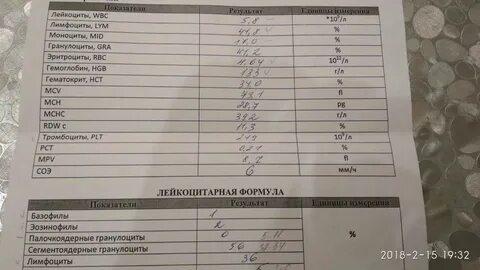 Показатели Результат Единицы измерения
Лейкоциты, WBC 5,8 *10⁹/л
Лимфоциты, LYM 41,8 %
Моноциты, MID %
Гранулоциты, GRA 41,2 %
Эритроциты, RBC 4,64 10¹²/л
Гемоглобин, HGB 133 г/л
Гематокрит, HCT 34,0 %
MCV fl
MCH 28,7 pg
MCHC 392 г/л
RDW c 11,3 %
Тромбоциты, PLT 10⁹/л
PCT 0,21 %
MPV 8,7 fl
СОЭ 6 мм/ч
ЛЕЙКОЦИТАРНАЯ ФОРМУЛА
Показатели Результат Единицы измерения
Базофилы 1
Эозинофилы 2
Палочкоядерные гранулоциты 0 %
Сегментоядерные гранулоциты 56
Лимфоциты 36
2018-2-15 19:32